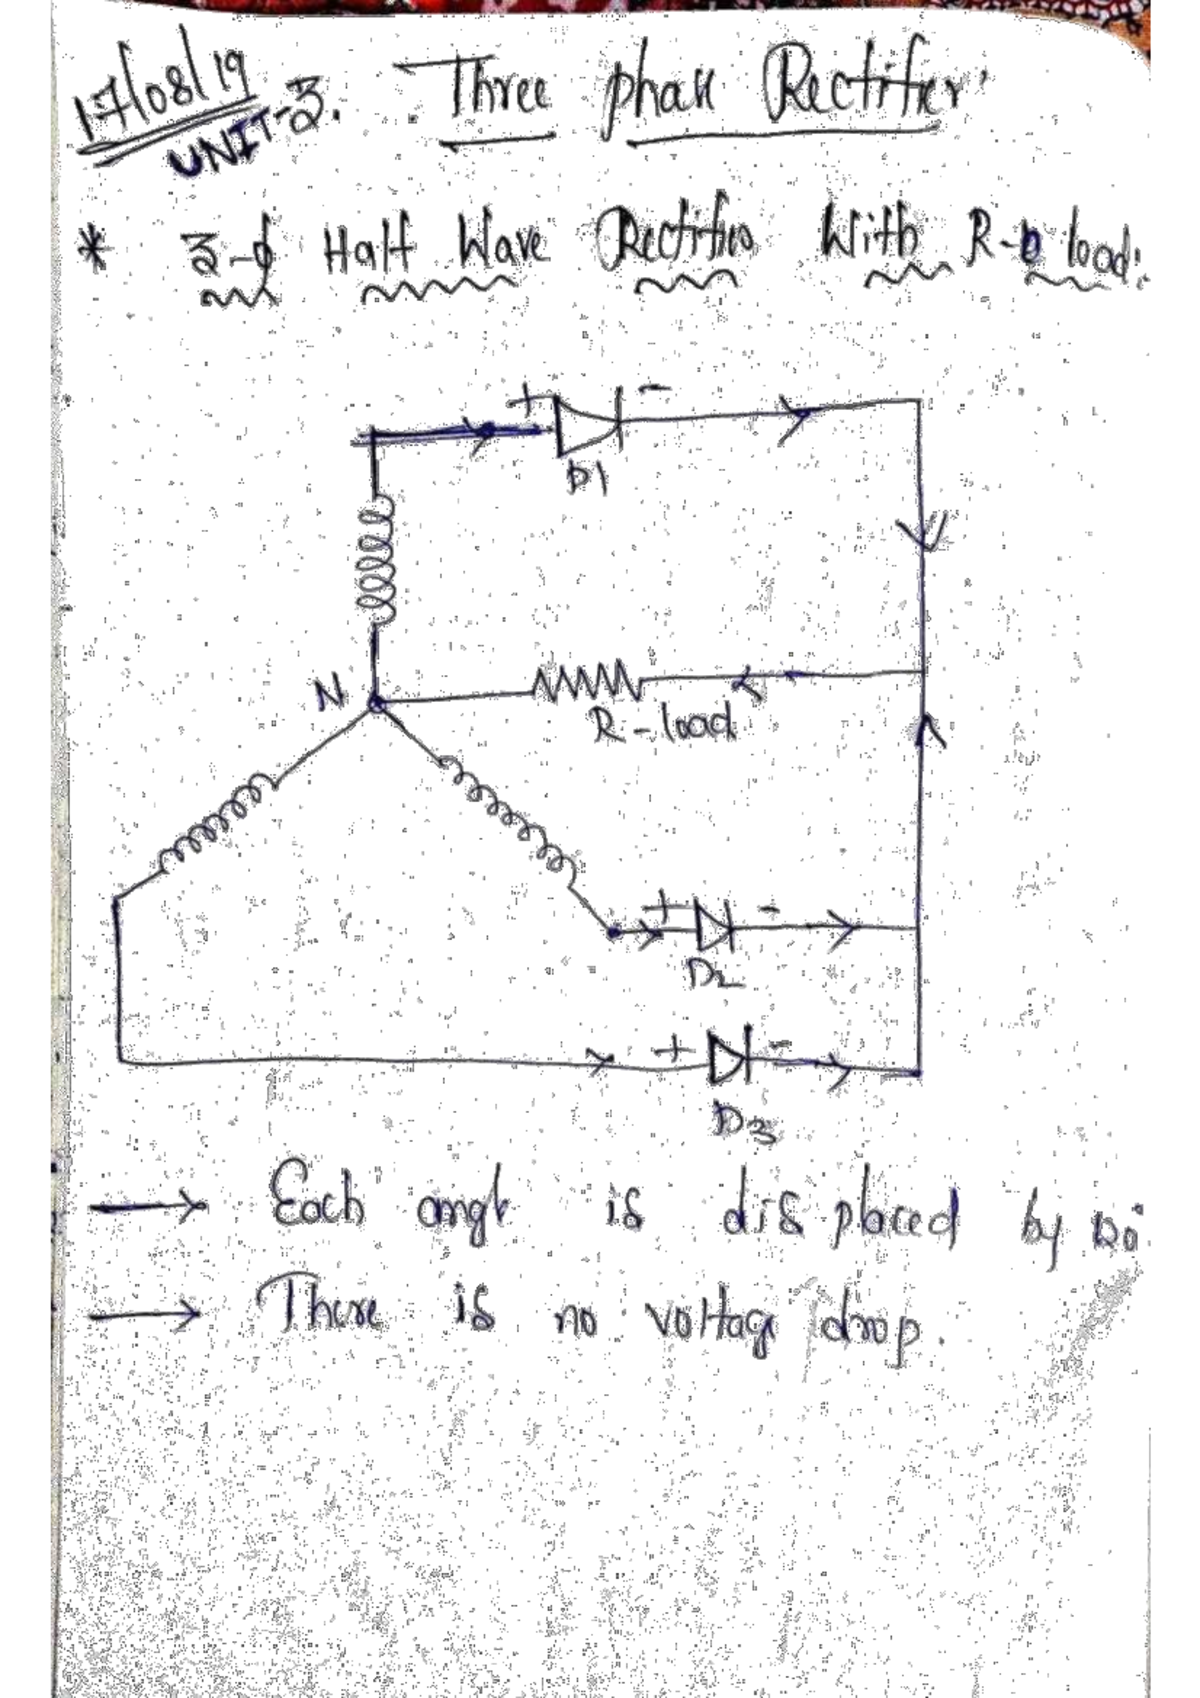 17/08/19
UNIT-3. Three phase Rectifier
* 3-ϕ Half Wave Rectifier With R- load:
+ -
D1
N
R-load
+ -
D2
+ -
D3
→ Each angle is displaced by 120°
→ There is no voltage drop.